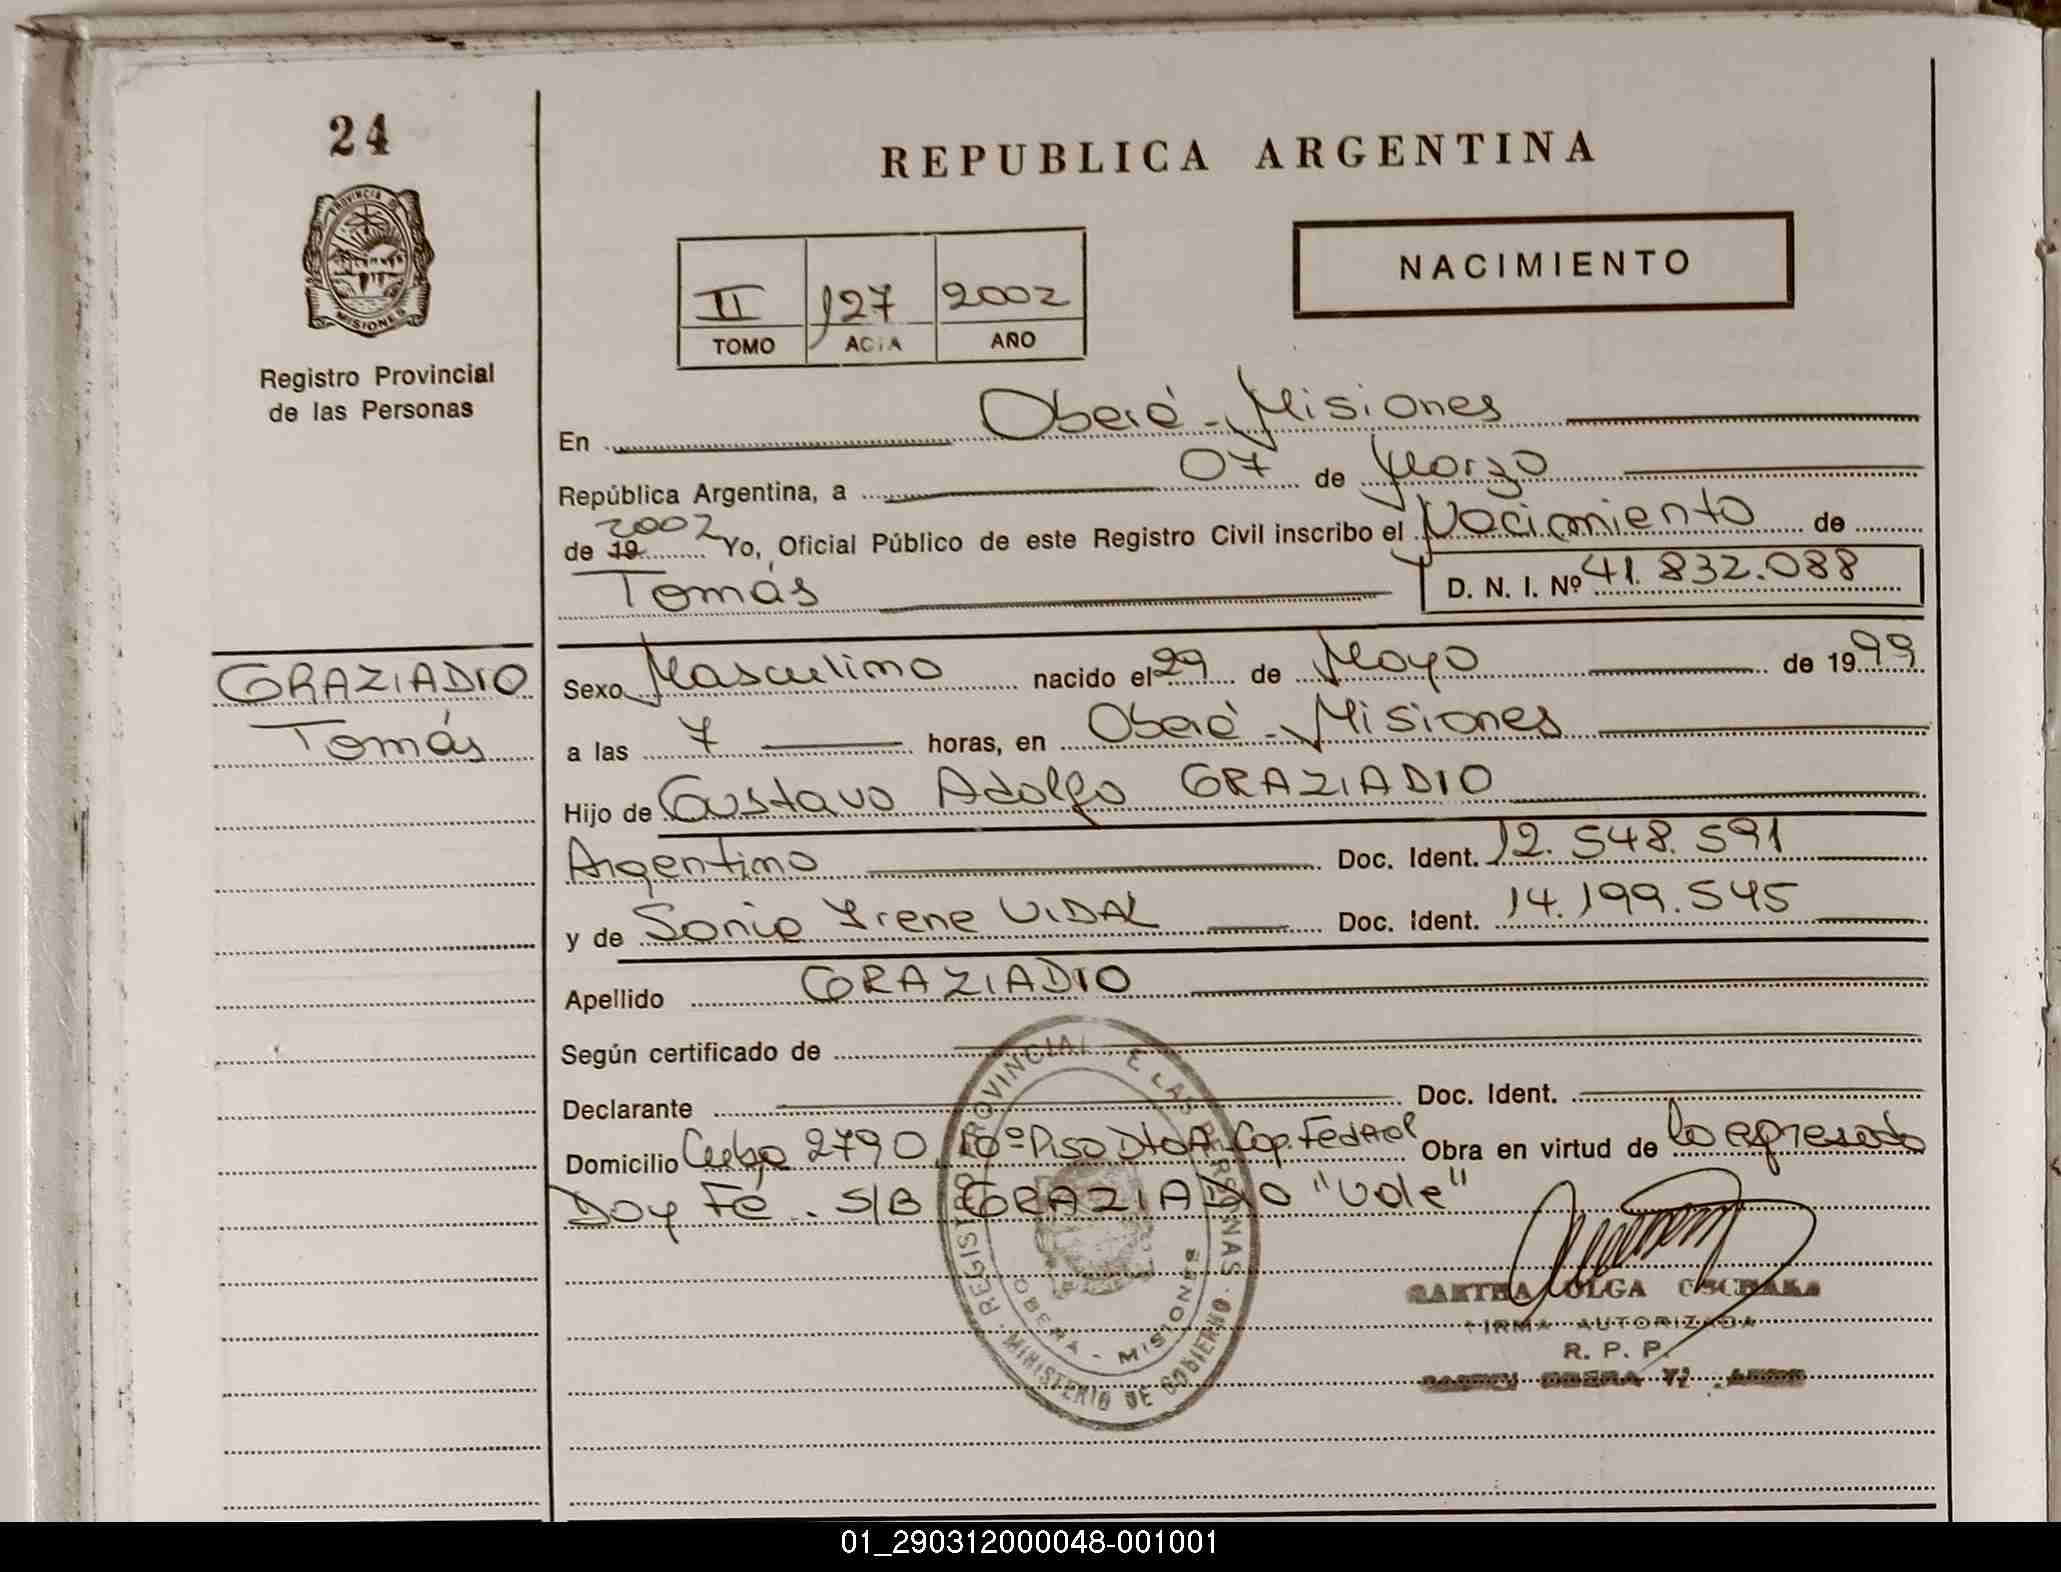 24
PROVINCIA DE
MISIONES
Registro Provincial
de las Personas
GRAZIADIO
Tomás
REPUBLICA ARGENTINA
NACIMIENTO
II 127 2002
TOMO ACTA AÑO
En Oberá - Misiones
República Argentina, a 07 de Marzo
de 19 2002 Yo, Oficial Público de este Registro Civil inscribo el Nacimiento de
Tomás D. N. I. Nº 41.832.088
Sexo Masculino nacido el 29 de Mayo de 1999
a las 7 horas, en Oberá - Misiones
Hijo de Gustavo Adolfo GRAZIADIO
Argentino Doc. Ident. 12.548.591
y de Sonia Irene VIDAL Doc. Ident. 14.199.545
Apellido GRAZIADIO
Según certificado de
Declarante Doc. Ident.
Domicilio Cuba 2790, 10º Piso Dto A. Cap. Federal Obra en virtud de lo expresado
Doy Fé. S/B GRAZIADIO "Vale"
REGISTRO PROVINCIAL DE LAS PERSONAS
OBERA - MISIONES
MINISTERIO DE GOBIERNO
OLGA
FIRMA AUTORIZADA
R. P. P.
OBERA
01_290312000048-001001